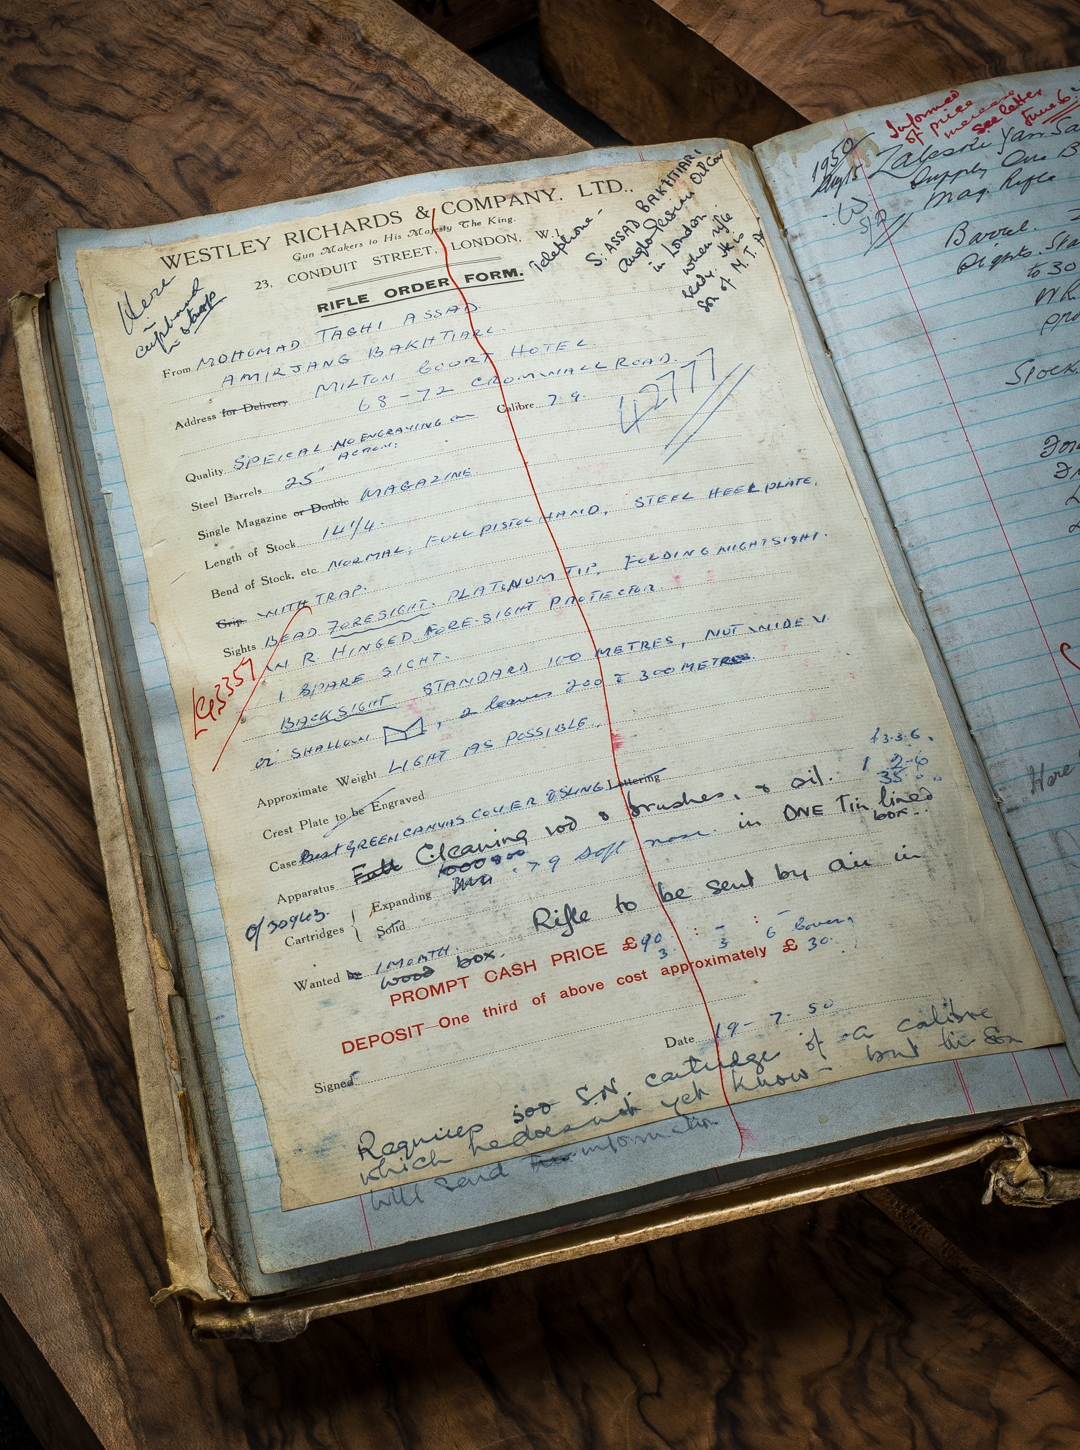 WESTLEY RICHARDS & COMPANY, LTD.,
Gun Makers to His Majesty The King.
23, CONDUIT STREET, LONDON, W.1.
RIFLE ORDER FORM.
Telephone -
S. ASSAD BAKHTIARI
Anglo Persian Oil Co
in London.
when rifle
ready. He is
Son of M. T. A.
Here
in
cupboard
in shop
From MOHOMAD TAGHI ASSAD
AMIRJANG BAKHTIARI.
Address for Delivery MILTON COURT HOTEL
68-72 CROMWALL ROAD.
Quality SPEICAL NO ENGRAVING on Calibre 7.9.
ACTION.
42777
Steel Barrels 25"
Single Magazine or Double MAGAZINE
Length of Stock 14 1/4.
Bend of Stock, etc. NORMAL, FULL PISTOL HAND, STEEL HEEL PLATE,
Grip WITH TRAP.
Sights BEAD FORESIGHT. PLATINUM TIP, FOLDING NIGHTSIGHT.
W R HINGED FORE-SIGHT PROTECTOR.
1 SPARE SIGHT.
BACKSIGHT STANDARD 100 METRES, NOT WIDE V
or SHALLOW , 2 leaves 200 & 300 METRES
Approximate Weight LIGHT AS POSSIBLE.
Crest Plate to be Engraved
Case Best GREEN CANVAS COVER & SLING Lettering
£3.3.6.
Apparatus Full Cleaning rod & brushes, & oil. 1 2-6
35
Cartridges
Expanding 7.9 soft nose. in ONE Tin lined
box.
Solid
O/30963.
Rifle to be sent by air in
Wanted in 1 MONTH.
wood box.
PROMPT CASH PRICE £90 : - : -
3. 3 6 Cover
DEPOSIT—One third of above cost approximately £ 30.
Date 19-7-50
Signed
Requires 500 S.N. cartridge of a calibre
which he does not yet know - but his Son
will send information
Informed
of price
increase
see letter
June 6
1950
Supply One B
Mag. Rifle
Barrel.
Sights. Sta
Stock
Here